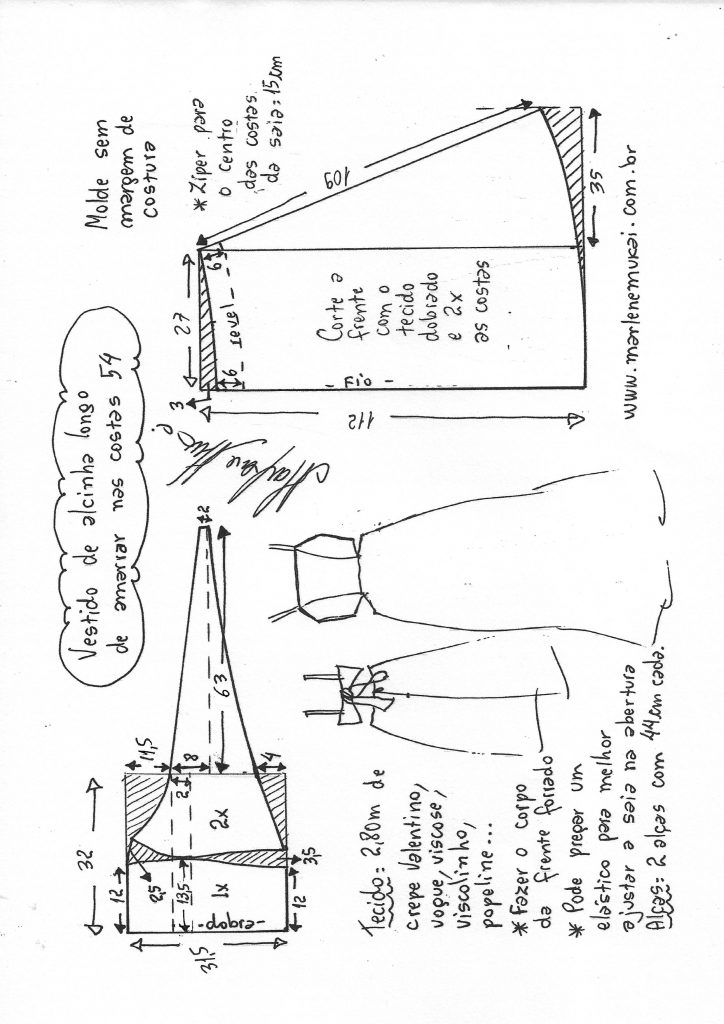 Vestido de alcinha longo
de amarrar nas costas 54
Molde sem
margem de
costura
* Zíper para
o centro
das costas
da saia: 15cm
32
11,5
8
2
4
63
2
2x
1x
12
12
2,5
13,5
3,5
31,5
-dobra-
27
3
6
6
revel
109
35
112
- Fio -
Corte a
frente
com o
tecido
dobrado
e 2x
as costas
www.marlenemukai.com.br
Tecido: 2,80m de
crepe Valentino,
voque, viscose,
viscolinho,
popeline...
* Fazer o corpo
da frente forrado
* Pode pregar um
elástico para melhor
ajustar a saia na abertura
Alças: 2 alças com 44cm cada.